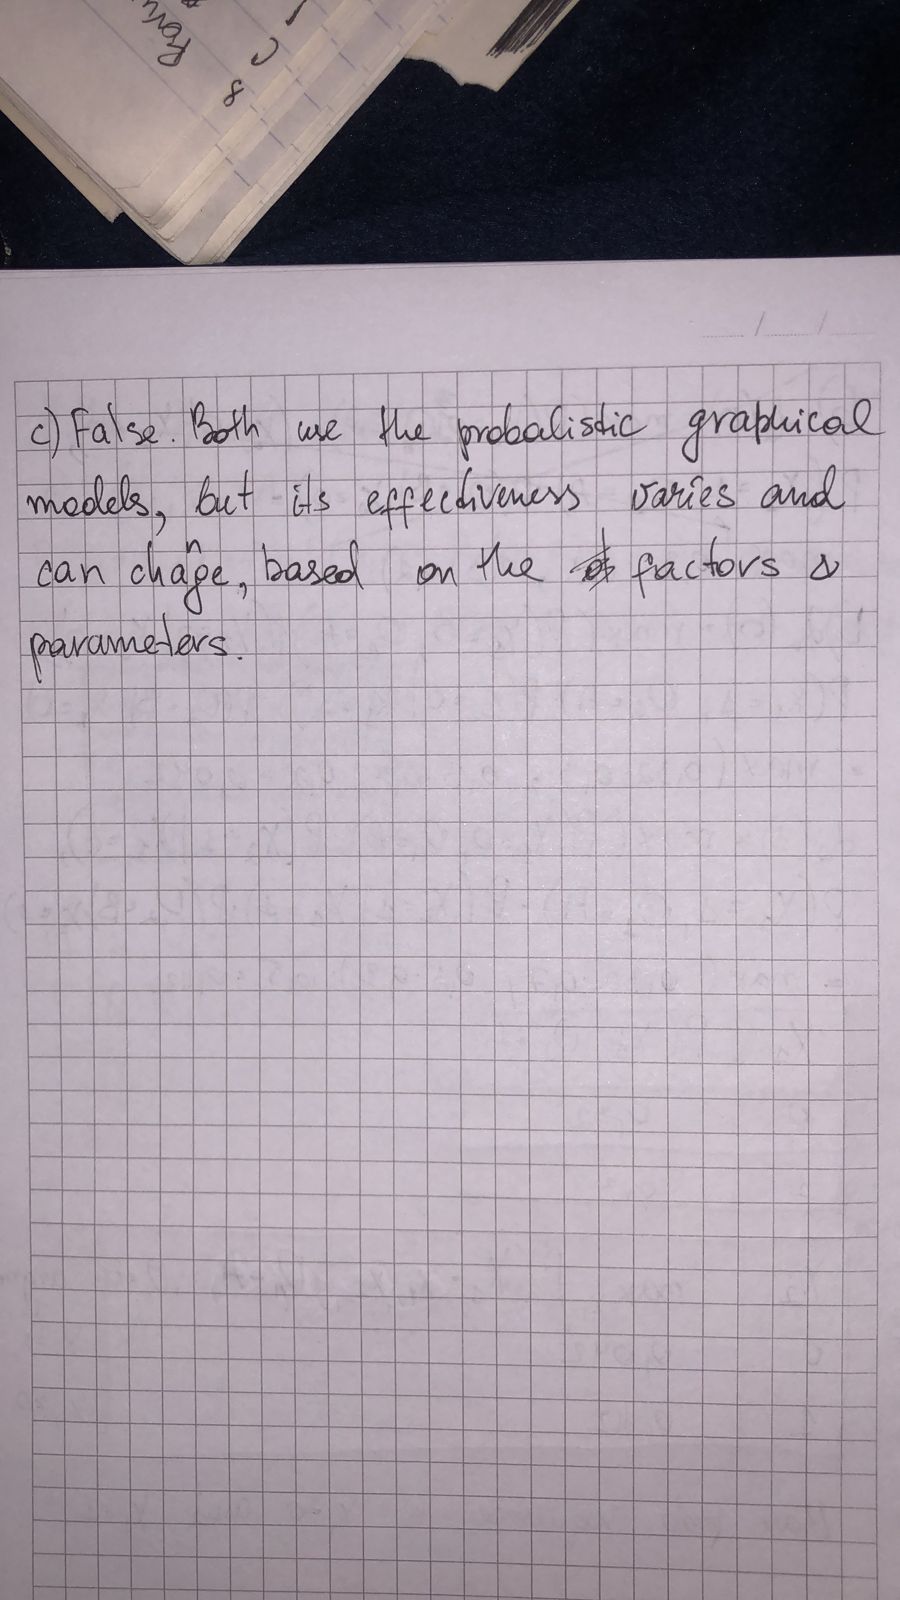 c) False. Both use the probalistic graphical
models, but its effectiveness varies and
can change, based on the factors &
parameters.
C
8